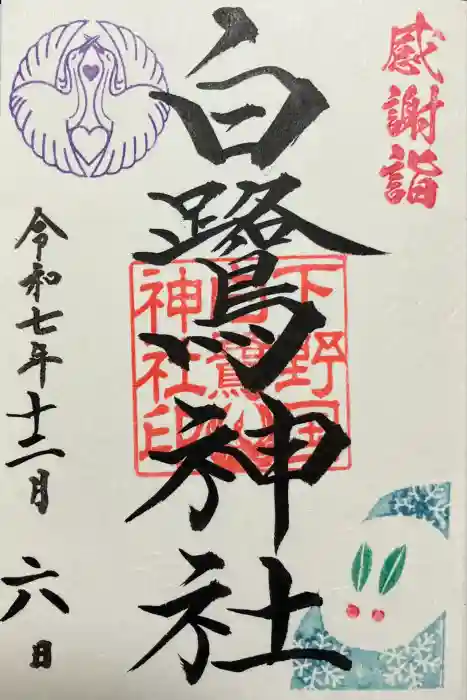 感謝詣
白鷺神社
下野国
白鷺
神社印
令和七年十二月
六日